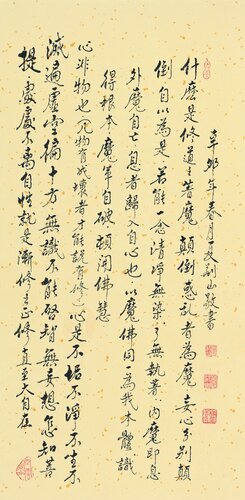 什麼是修道之著魔顛倒惑亂者為魔妄心分別顛
倒自以為是若能一念清淨無染了無執著內魔即息
外魔自亡息者歸入自心也以魔佛同一為我本體識
得根本魔軍自破頓開佛慧
心非物也（凡物有成壞者才能說有修）心是不垢不淨不生不
滅遍虛空徧十方無識不能努智無妄想怎知菩
提處處不离自性就是漸修之正修直至大自在
辛卯年春月 山敬書